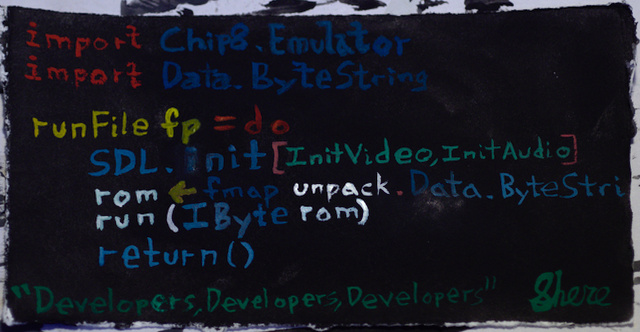 import Chip8.Emulator
import Data.ByteString
runFile fp = do
SDL.init [InitVideo, InitAudio]
rom ← fmap unpack.Data.ByteStri
run (IByte rom)
return ()
"Developers, Developers, Developers" Shere